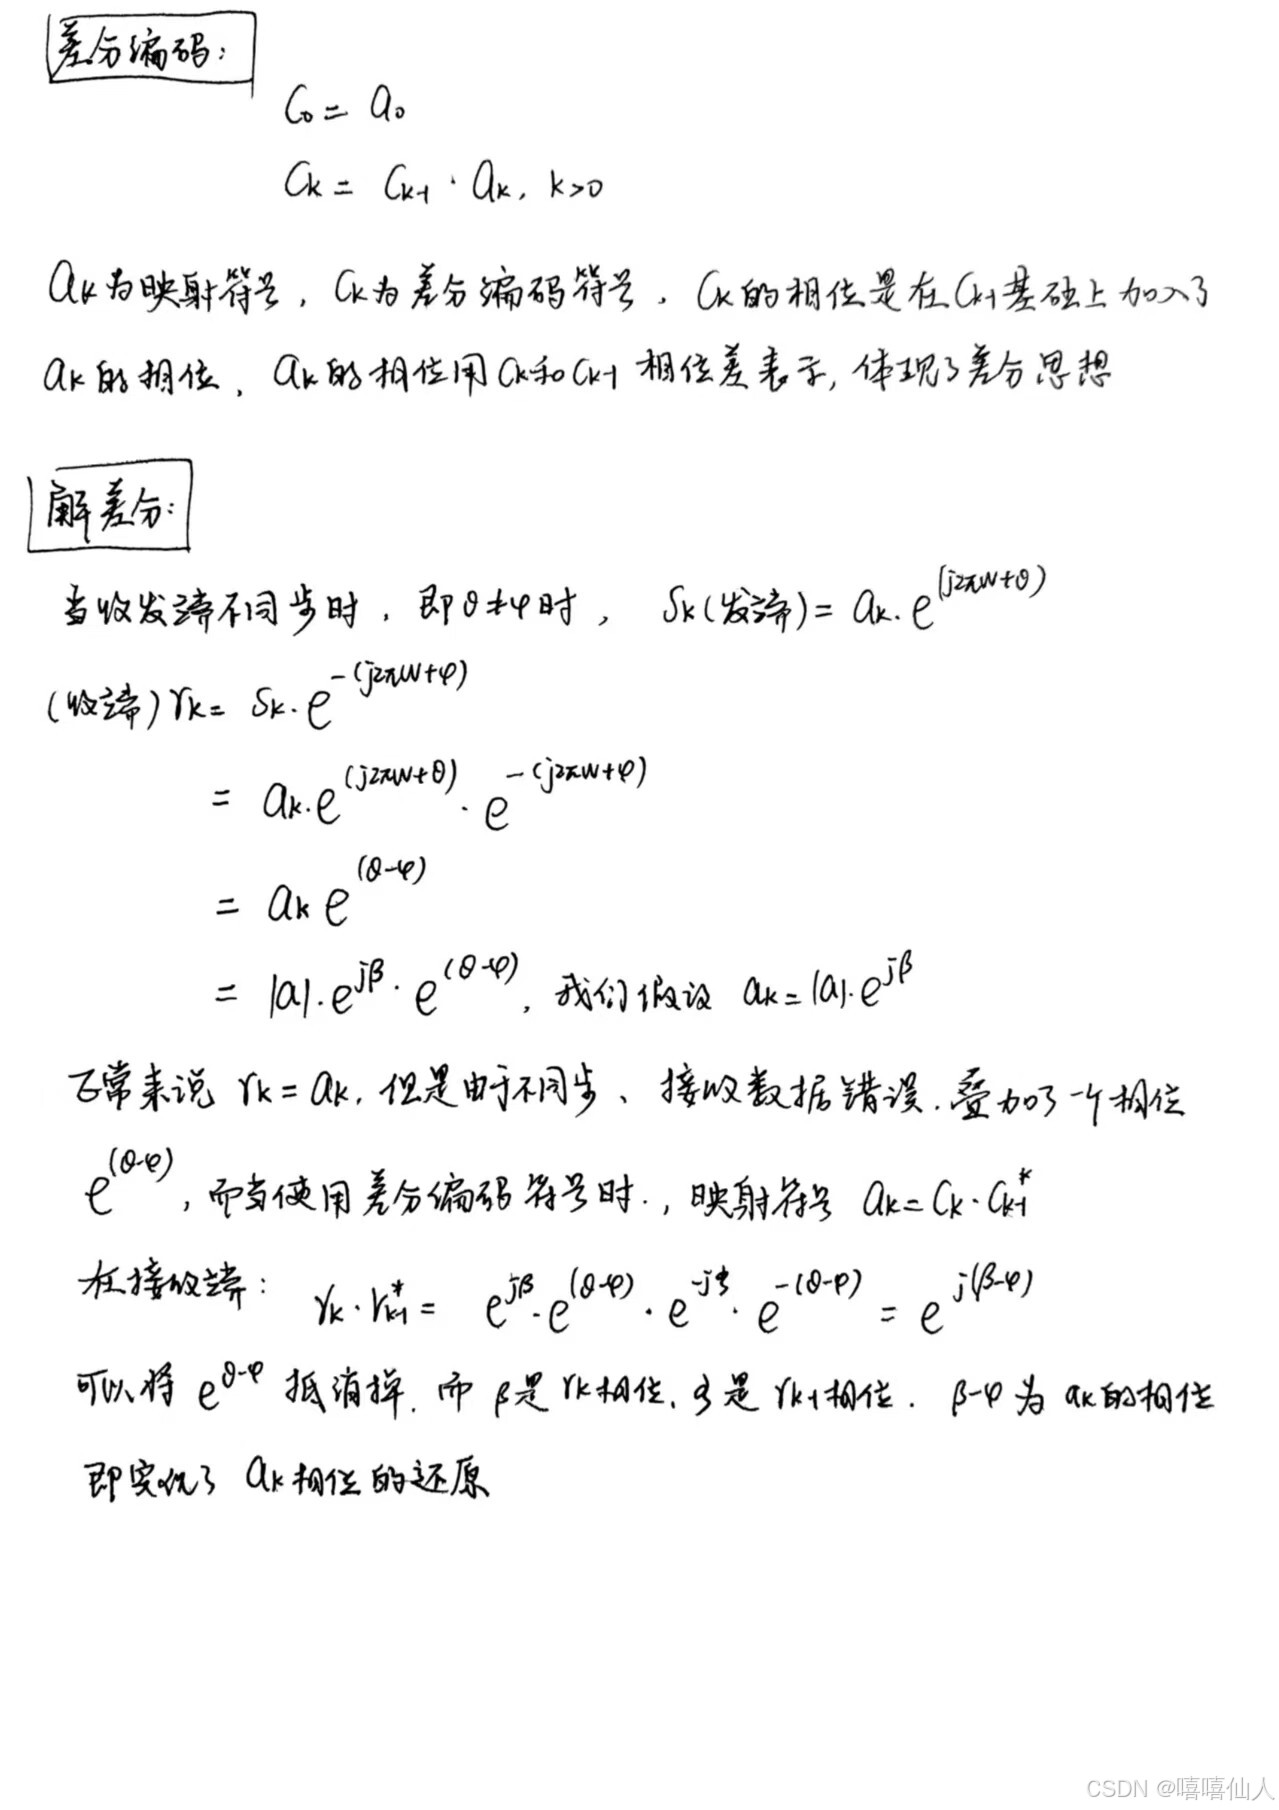 差分编码:
C₀ = a₀
Cₖ = Cₖ₋₁ · aₖ, k>0
aₖ为映射符号, Cₖ为差分编码符号, Cₖ的相位是在Cₖ₋₁基础上加入了
aₖ的相位, aₖ的相位用Cₖ和Cₖ₋₁相位差表示, 体现了差分思想
解差分:
当收发端不同步时, 即θ≠φ时, Sₖ(发端) = aₖ·e^(j2πw+θ)
(收端) rₖ = Sₖ·e^-(j2πw+φ)
= aₖ·e^(j2πw+θ) · e^-(j2πw+φ)
= aₖ e^(θ-φ)
= |a|·e^jβ · e^(θ-φ), 我们假设 aₖ = |a|·e^jβ
正常来说 rₖ = aₖ, 但是由于不同步、接收数据错误, 叠加了一个相位
e^(θ-φ), 而当使用差分编码符号时, 映射符号 aₖ = Cₖ·Cₖ₋₁*
在接收端: rₖ·rₖ₋₁* = e^jβ · e^(θ-φ) · e^-j · e^-(θ-φ) = e^j(β-φ)
可以将 e^θ-φ 抵消掉, 而 β是rₖ相位, 是rₖ₋₁相位. β-φ 为 aₖ的相位
即实现了 aₖ相位的还原
CSDN @嘻嘻仙人